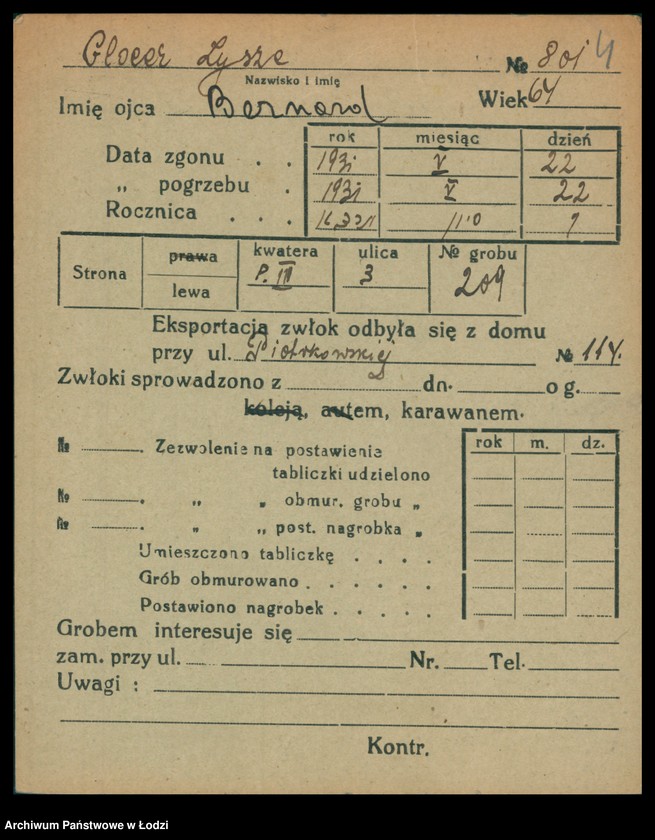 Glocer Lysze № 801 4
Nazwisko i imię
Imię ojca Bernard Wiek 64
rok miesiąc dzień
Data zgonu . . 1931 V 22
„ pogrzebu . 1931 V 22
Rocznica . . .
Strona prawa kwatera ulica № grobu
lewa P. III 3 209
Eksportacją zwłok odbyła się z domu
przy ul. Piotrkowskiej № 114.
Zwłoki sprowadzono z dn. o g.
koleją, autem, karawanem.
rok m. dz.
№ . Zezwolenie na postawienie
tabliczki udzielono
№ . „ „ obmur. grobu „
№ . „ „ post. nagrobka „
Umieszczono tabliczkę . . . .
Grób obmurowano . . . . .
Postawiono nagrobek . . . .
Grobem interesuje się
zam. przy ul. Nr. Tel.
Uwagi :
Kontr.
Archiwum Państwowe w Łodzi